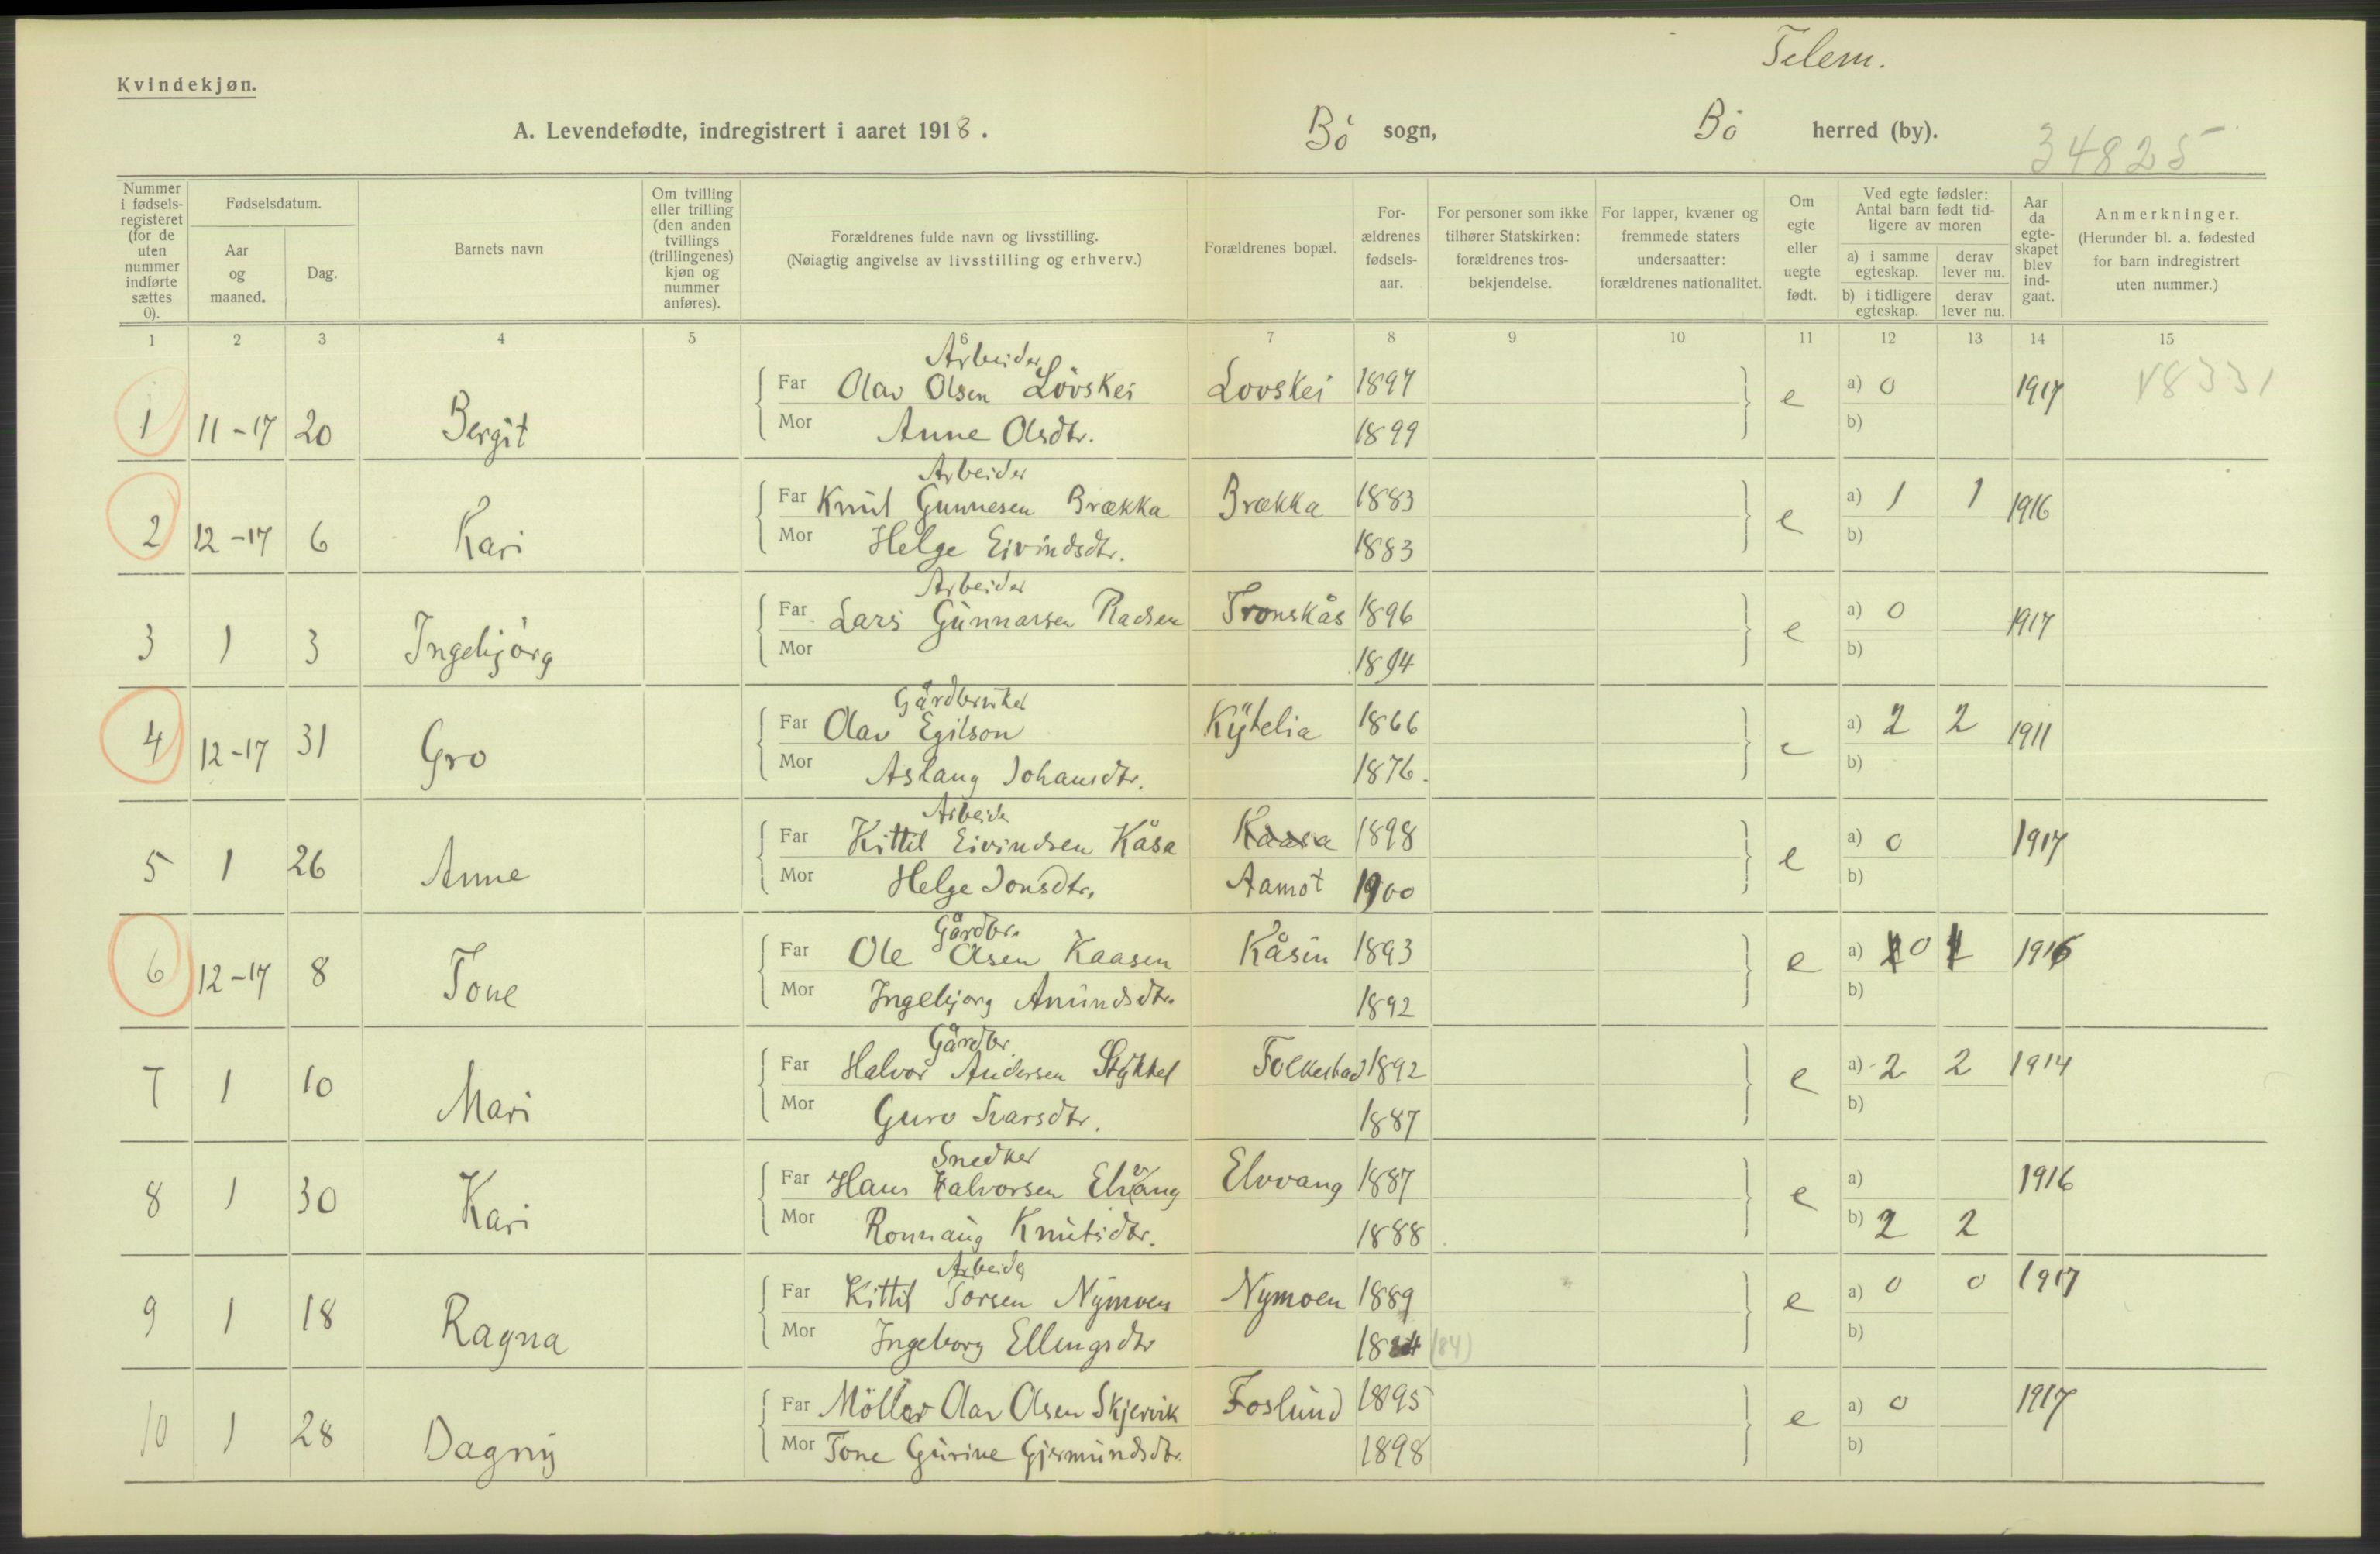 Telem.
Kvindekjøn.
A. Levendefødte, indregistrert i aaret 1918. Bö sogn, Bö herred (by).
34825
Nummer i fødsels-registeret (for de uten nummer indførte sættes 0). Fødselsdatum. Aar og maaned. Dag. Barnets navn Om tvilling eller trilling (den anden tvillings (trillingenes) kjøn og nummer anføres). Forældrenes fulde navn og livsstilling. (Nøiagtig angivelse av livsstilling og erhverv.) Forældrenes bopæl. For-ældrenes fødsels-aar. For personer som ikke tilhører Statskirken: forældrenes tros-bekjendelse. For lapper, kvæner og fremmede staters undersaatter: forældrenes nationalitet. Om egte eller uegte født. Ved egte fødsler: Antal barn født tid-ligere av moren a) i samme egteskap. derav lever nu. b) i tidligere egteskap. derav lever nu. Aar da egte-skapet blev ind-gaat. Anmerkninger. (Herunder bl. a. fødested for barn indregistrert uten nummer.)
1 2 3 4 5 6 7 8 9 10 11 12 13 14 15
Arbeider
Far Olav Olsen Lövskei Lovskei 1897 a) 0 1917 18331
1 11-17 20 Bergit e
Mor Anne Olsdtr. 1899 b)
Arbeider
Far Knut Gunnesen Brækka Brækka 1883 a) 1 1 1916
2 12-17 6 Kari e
Mor Helge Eivindsdtr. 1883 b)
Arbeider
Far Lars Gunnarsen Tronskås 1896 a) 0 1917
3 1 3 Ingebjörg e
Mor 1894 b)
Gårdbruker
Far Olav Egilson Kytelia 1866 a) 2 2 1911
4 12-17 31 Gro e
Mor Aslaug Johansdtr. 1876. b)
Arbeider
Far Kittil Eivindsen Kåsa Kaasa 1898 a) 0 1917
5 1 26 Anne e
Mor Helge Jonsdtr. Aamot 1900 b)
Gårdbr.
Far Ole Olsen Kaasen Kåsin 1893 a) 0 1916
6 12-17 8 Tone e
Mor Ingebjorg Anundsdtr. 1892 b)
Gårdbr.
Far Halvor Andersen Folkestad 1892 a) 2 2 1914
7 1 10 Mari e
Mor Guro Ivarsdtr. 1887 b)
Snedker
Far Hans Halvorsen Elvvang Elvvang 1887 a) 1916
8 1 30 Kari e
Mor Ronnaug Knutsdtr. 1888 b) 2 2
Arbeider
Far Kittil Torsen Nymoen Nymoen 1889 a) 0 0 1917
9 1 18 Ragna e
Mor Ingeborg Ellingsdtr 1884 (84) b)
Far Möller Olav Olsen Skjervik Foslund 1895 a) 0 1917
10 1 28 Dagny e
Mor Tone Gurine Gjermundsdtr. 1898 b)